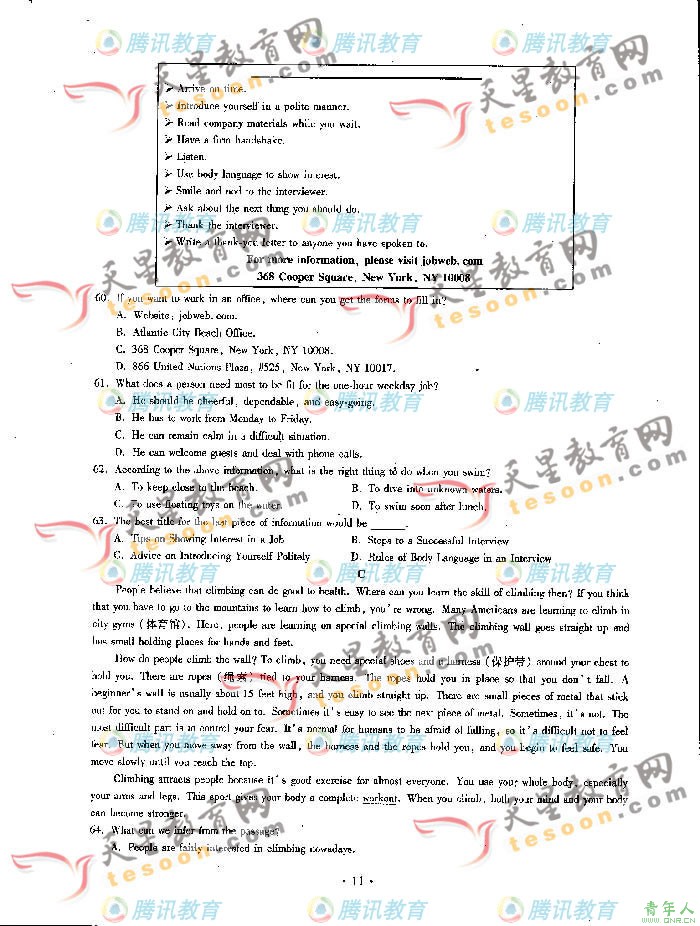 ➢ Arrive on time.
➢ Introduce yourself in a polite manner.
➢ Read company materials while you wait.
➢ Have a firm handshake.
➢ Listen.
➢ Use body language to show interest.
➢ Smile and nod to the interviewer.
➢ Ask about the next thing you should do.
➢ Thank the interviewer.
➢ Write a thank-you letter to anyone you have spoken to.
For more information, please visit jobweb. com
368 Cooper Square, New York, NY 10008
60. If you want to work in an office, where can you get the forms to fill in?
A. Website: jobweb. com.
B. Atlantic City Beach Office.
C. 368 Cooper Square, New York, NY 10008.
D. 866 United Nations Plaza, #525, New York, NY 10017.
61. What does a person need most to be fit for the one-hour weekday job?
A. He should be cheerful, dependable, and easy-going.
B. He has to work from Monday to Friday.
C. He can remain calm in a difficult situation.
D. He can welcome guests and deal with phone calls.
62. According to the above information, what is the right thing to do when you swim?
A. To keep close to the beach. B. To dive into unknown waters.
C. To use floating toys on the water. D. To swim soon after lunch.
63. The best title for the last piece of information would be ______.
A. Tips on Showing Interest in a Job B. Steps to a Successful Interview
C. Advice on Introducing Yourself Politely D. Rules of Body Language in an Interview
C
People believe that climbing can do good to health. Where can you learn the skill of climbing then? If you think
that you have to go to the mountains to learn how to climb, you're wrong. Many Americans are learning to climb in
city gyms (体育馆). Here, people are learning on special climbing walls. The climbing wall goes straight up and
has small holding places for hands and feet.
How do people climb the wall? To climb, you need special shoes and a harness (保护带) around your chest to
hold you. There are ropes (绳索) tied to your harness. The ropes hold you in place so that you don't fall. A
beginner's wall is usually about 15 feet high, and you climb straight up. There are small pieces of metal that stick
out for you to stand on and hold on to. Sometimes it's easy to see the next piece of metal. Sometimes, it's not. The
most difficult part is to control your fear. It's normal for humans to be afraid of falling, so it's difficult not to feel
fear. But when you move away from the wall, the harness and the ropes hold you, and you begin to feel safe. You
move slowly until you reach the top.
Climbing attracts people because it's good exercise for almost everyone. You use your whole body, especially
your arms and legs. This sport gives your body a complete workout. When you climb, both your mind and your body
can become stronger.
64. What can we infer from the passage?
A. People are fairly interested in climbing nowadays.
· 11 ·
腾讯教育
天星教育网
tesoon.com
青年人
www.QNR.CN